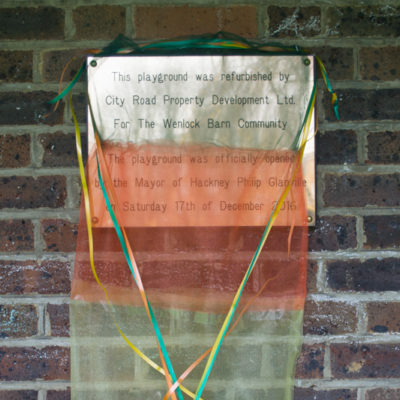 This playground was refurbished by
City Road Property Development Ltd.
For The Wenlock Barn Community
The playground was officially opened
by the Mayor of Hackney Philip Glanville
on Saturday 17th of December 2016